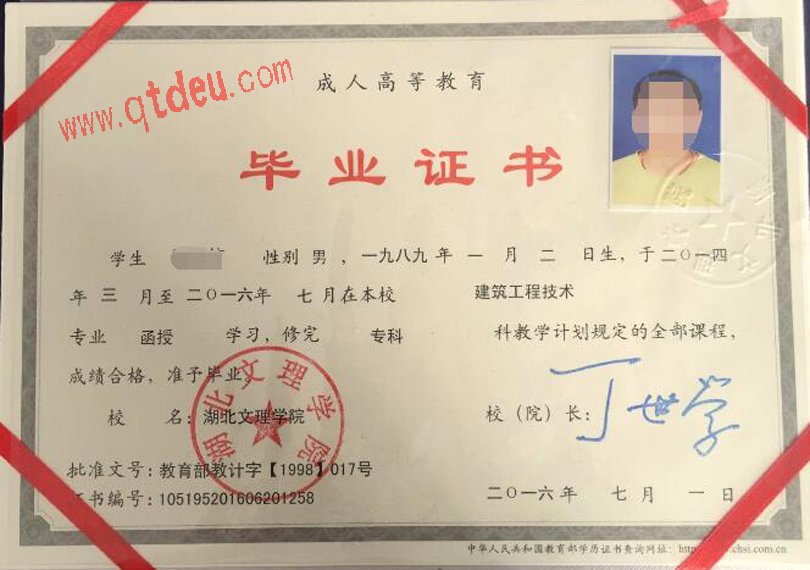 www.qtdeu.com
成人高等教育
毕业证书
学生 性别 男，一九八九年 一 月 二 日生，于二〇一四
年 三 月至 二〇一六年 七月在本校 建筑工程技术
专业 函授 学习，修完 专科 科教学计划规定的全部课程，
成绩合格，准予毕业。
校 名：湖北文理学院 校（院）长：丁世学
湖北文理学院
批准文号：教育部教计字【1998】017号
证书编号：105195201606201258 二〇一六年 七月 一日
中华人民共和国教育部学历证书查询网址：http .chsi.com.cn